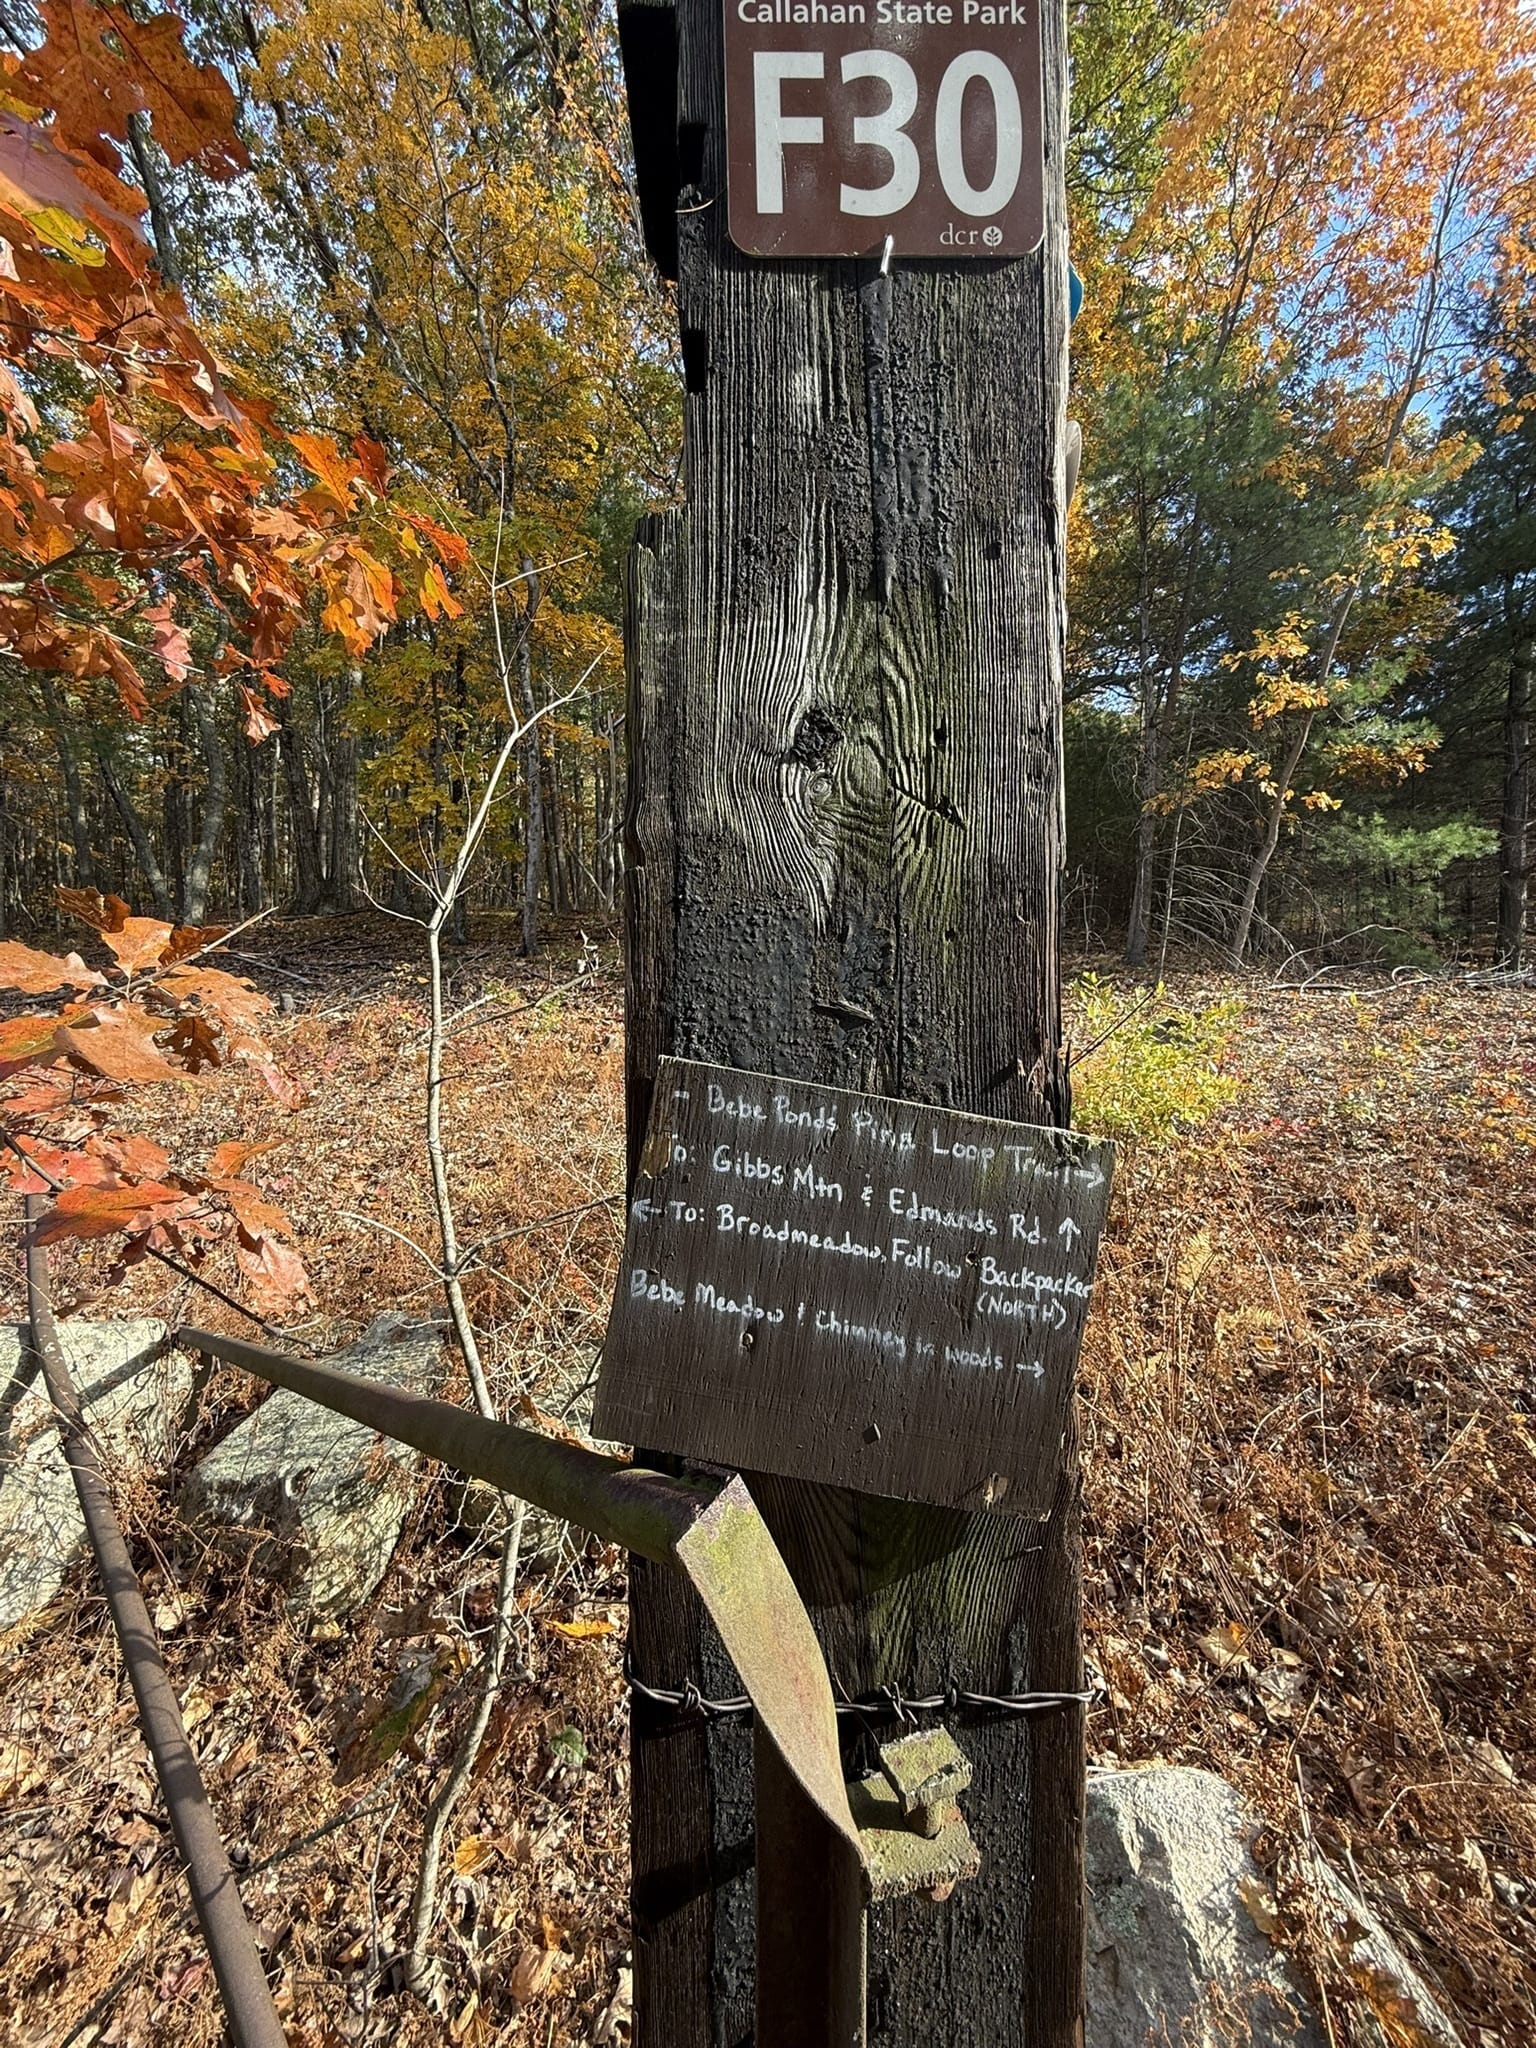 Callahan State Park
F30
dcr
- Bebe Pond's Pine Loop Trail →
To: Gibbs Mtn & Edmands Rd. ↑
← To: Broadmeadow, Follow Backpacker
(NORTH)
Bebe Meadow & Chimney in woods →